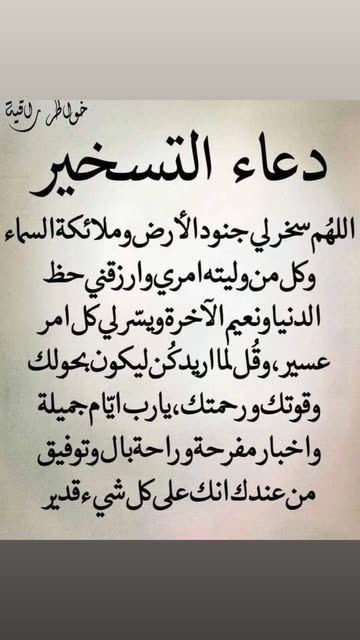 خواطر راقية
دعاء التسخير
اللهُم سخر لي جنود الأرض وملائكة السماء
وكل من وليته امري وارزقني حظ
الدنيا ونعيم الآخرة ويسّر لي كل امر
عسير، وقُل لما اريد كُن ليكون بحولك
وقوتك ورحمتك، يارب ايّام جميلة
واخبار مفرحة وراحة بال وتوفيق
من عندك انك على كل شيء قدير